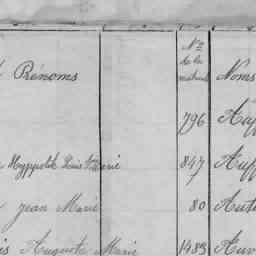 Prénoms
Nº
de la
matricule
Noms
796
Hyppolite Louis Marie
847
Auff
jean Marie
80
Auguste Marie
1483